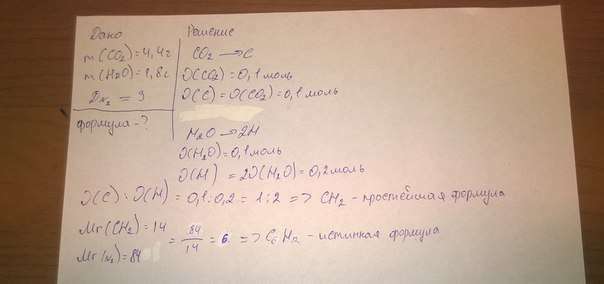 Дано
m(CO₂)=4,4г
m(H₂O)=1,8г
D N₂ = 3
формула-?
Решение
CO₂ → C
ν(CO₂)=0,1моль
ν(C)=ν(CO₂)=0,1моль
H₂O → 2H
ν(H₂O)=0,1моль
ν(H) = 2ν(H₂O)=0,2моль
ν(C):ν(H) = 0,1:0,2 = 1:2 => CH₂ - простейшая формула
Mr(CH₂)=14
Mr(N₂)=84
= 84/14 = 6 => C₆H₁₂ - истинная формула